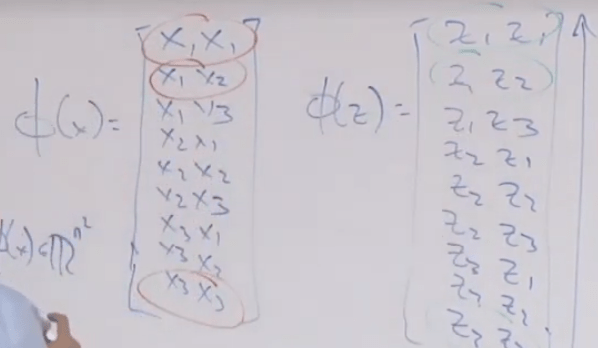 φ(x) = [x₁x₁
x₁x₂
x₁x₃
x₂x₁
x₂x₂
x₂x₃
x₃x₁
x₃x₂
x₃x₃]
φ(z) = [z₁z₁
z₁z₂
z₁z₃
z₂z₁
z₂z₂
z₂z₃
z₃z₁
z₃z₂
z₃z₃]
φ(x) ∈ ℝⁿ²